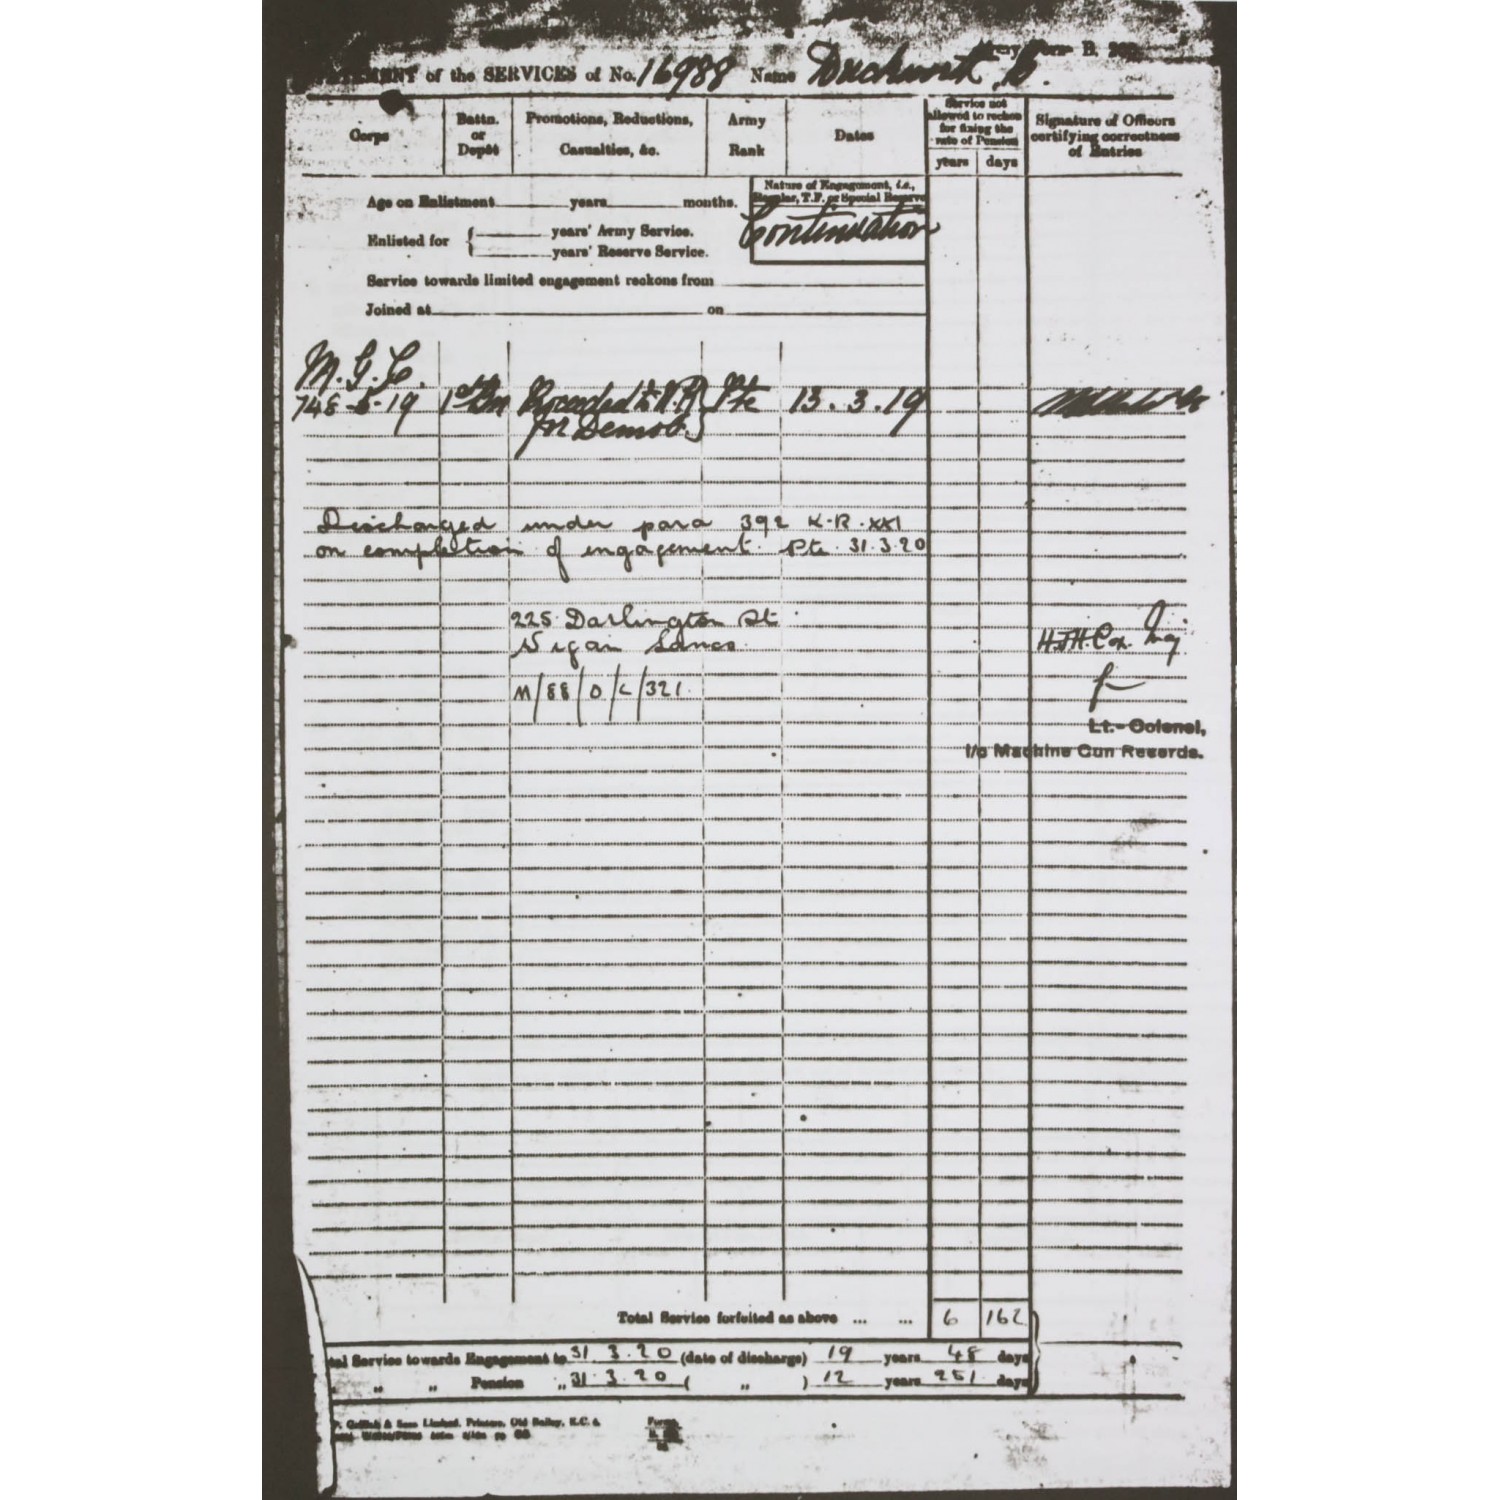 Army Form B.
of the SERVICES of No. 16988 Name
Corps
Battn. or Depôt
Promotions, Reductions, Casualties, &c.
Army Rank
Dates
Service not allowed to reckon for fixing the rate of Pension
years days
Signature of Officers certifying correctness of Entries
Age on Enlistment years months.
Nature of Engagement, i.e.,
Regular, T.F. or Special Reserve
Continuation
Enlisted for
years' Army Service.
years' Reserve Service.
Service towards limited engagement reckons from
Joined at on
M.G.C.
1st Bn Proceeded to Pte 13.3.19
for Demob.
Discharged under para 392 K.R. XXI
on completion of engagement. Pte. 31.3.20
225 Darlington St
Wigan Lancs
M/88/0/L/321.
H.J.H. Cox. Maj
Lt.-Colonel,
I/c Machine Gun Records.
Total Service forfeited as above ... ... 6 162
Service towards Engagement to 31 3.20 (date of discharge) 19 years 48 days
„ „ Pension „ 31 3.20 ( „ ) 12 years 251 days
& Sons Limited, Printers, Old Bailey, E.C. 4.
Forms